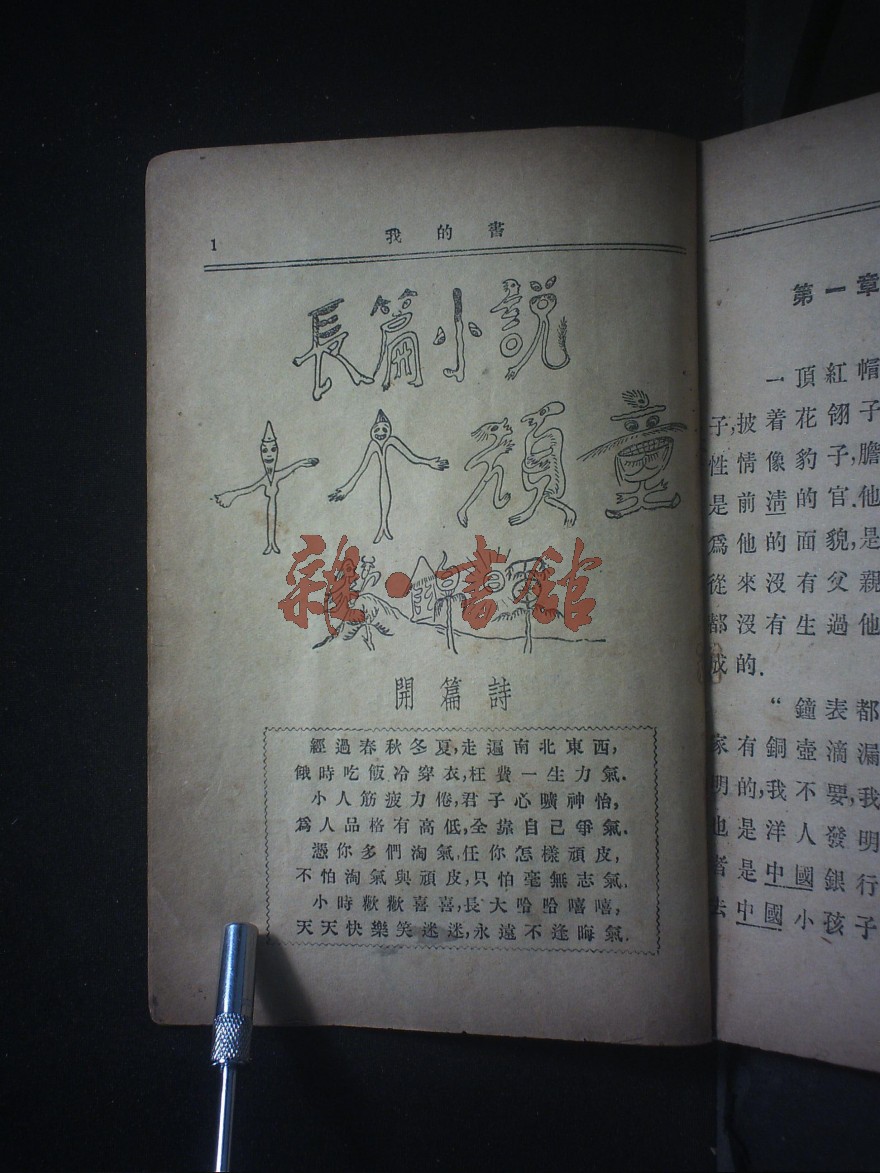 1 我的書
長篇小說
十个頑童
黎錦暉
雜·書館
開篇詩
經過春秋冬夏,走遍南北東西,
餓時吃飯冷穿衣,枉費一生力氣.
小人筋疲力倦,君子心曠神怡,
爲人品格有高低,全靠自己爭氣.
憑你多們淘氣,任你怎樣頑皮,
不怕淘氣與頑皮,只怕毫無志氣.
小時歡歡喜喜,長大哈哈嘻嘻,
天天快樂笑迷迷,永遠不逢晦氣.
第一章
一頂紅帽
子,披着花翎子
性情像豹子,膽
是前清的官.他
爲他的面貌,是
從來沒有父親
都沒有生過他
成的.
“鐘表都
家有銅壺滴漏
明的,我不要,我
也是洋人發明
者是中國銀行
去中國小孩子